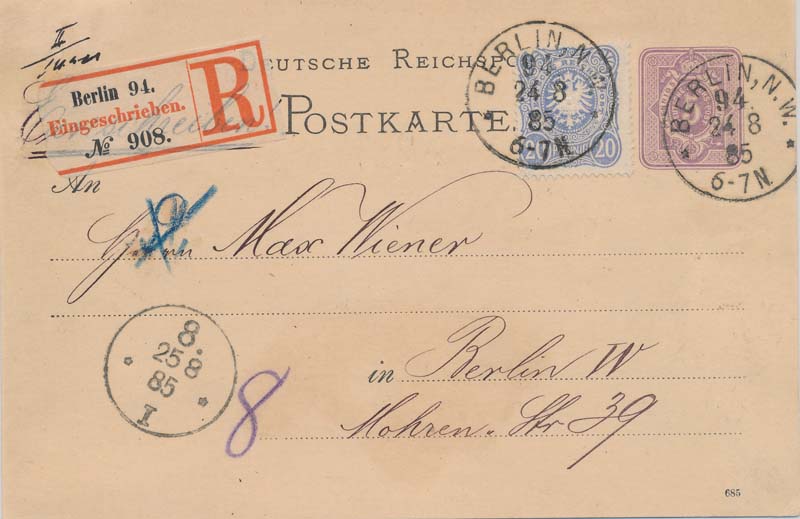 II
Berlin 94.
Eingeschrieben.
№ 908.
R
DEUTSCHE REICHSPO
POSTKARTE.
BERLIN, N.W.
94.
24 8
85
6-7N.
20 PFENNIG 20
BERLIN, N.W.
94.
24 8
85
6-7N
An
Herrn Max Wiener
8.
25 8
85
I
8
in Berlin W
Mohren-Str 39
685